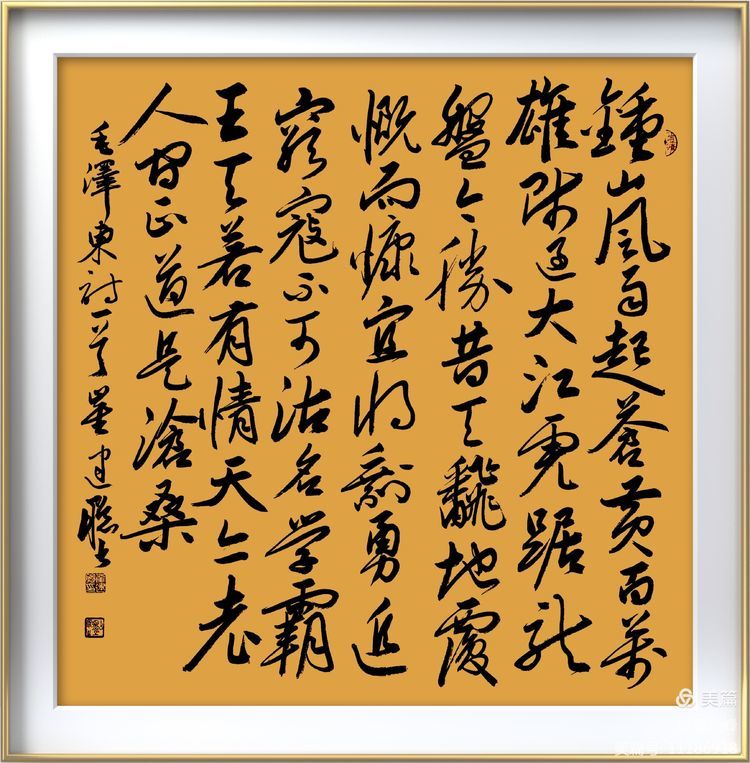 鍾山风雨起蒼黄百萬
雄师过大江虎踞龙
盤今勝昔天翻地覆
慨而慷宜将剩勇追
窮寇不可沽名学霸
王天若有情天亦老
人间正道是滄桑
毛澤東诗一首 建聪书
美篇